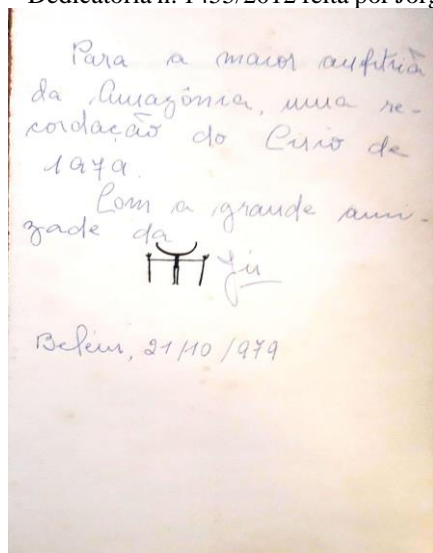 Dedicatória n. 1455/2012 feita por Jorg
Para a maior anfitriã
da Amazônia, uma re-
cordação do Círio de
1979.
Com a grande ami-
zade da
Belém, 21/10/979